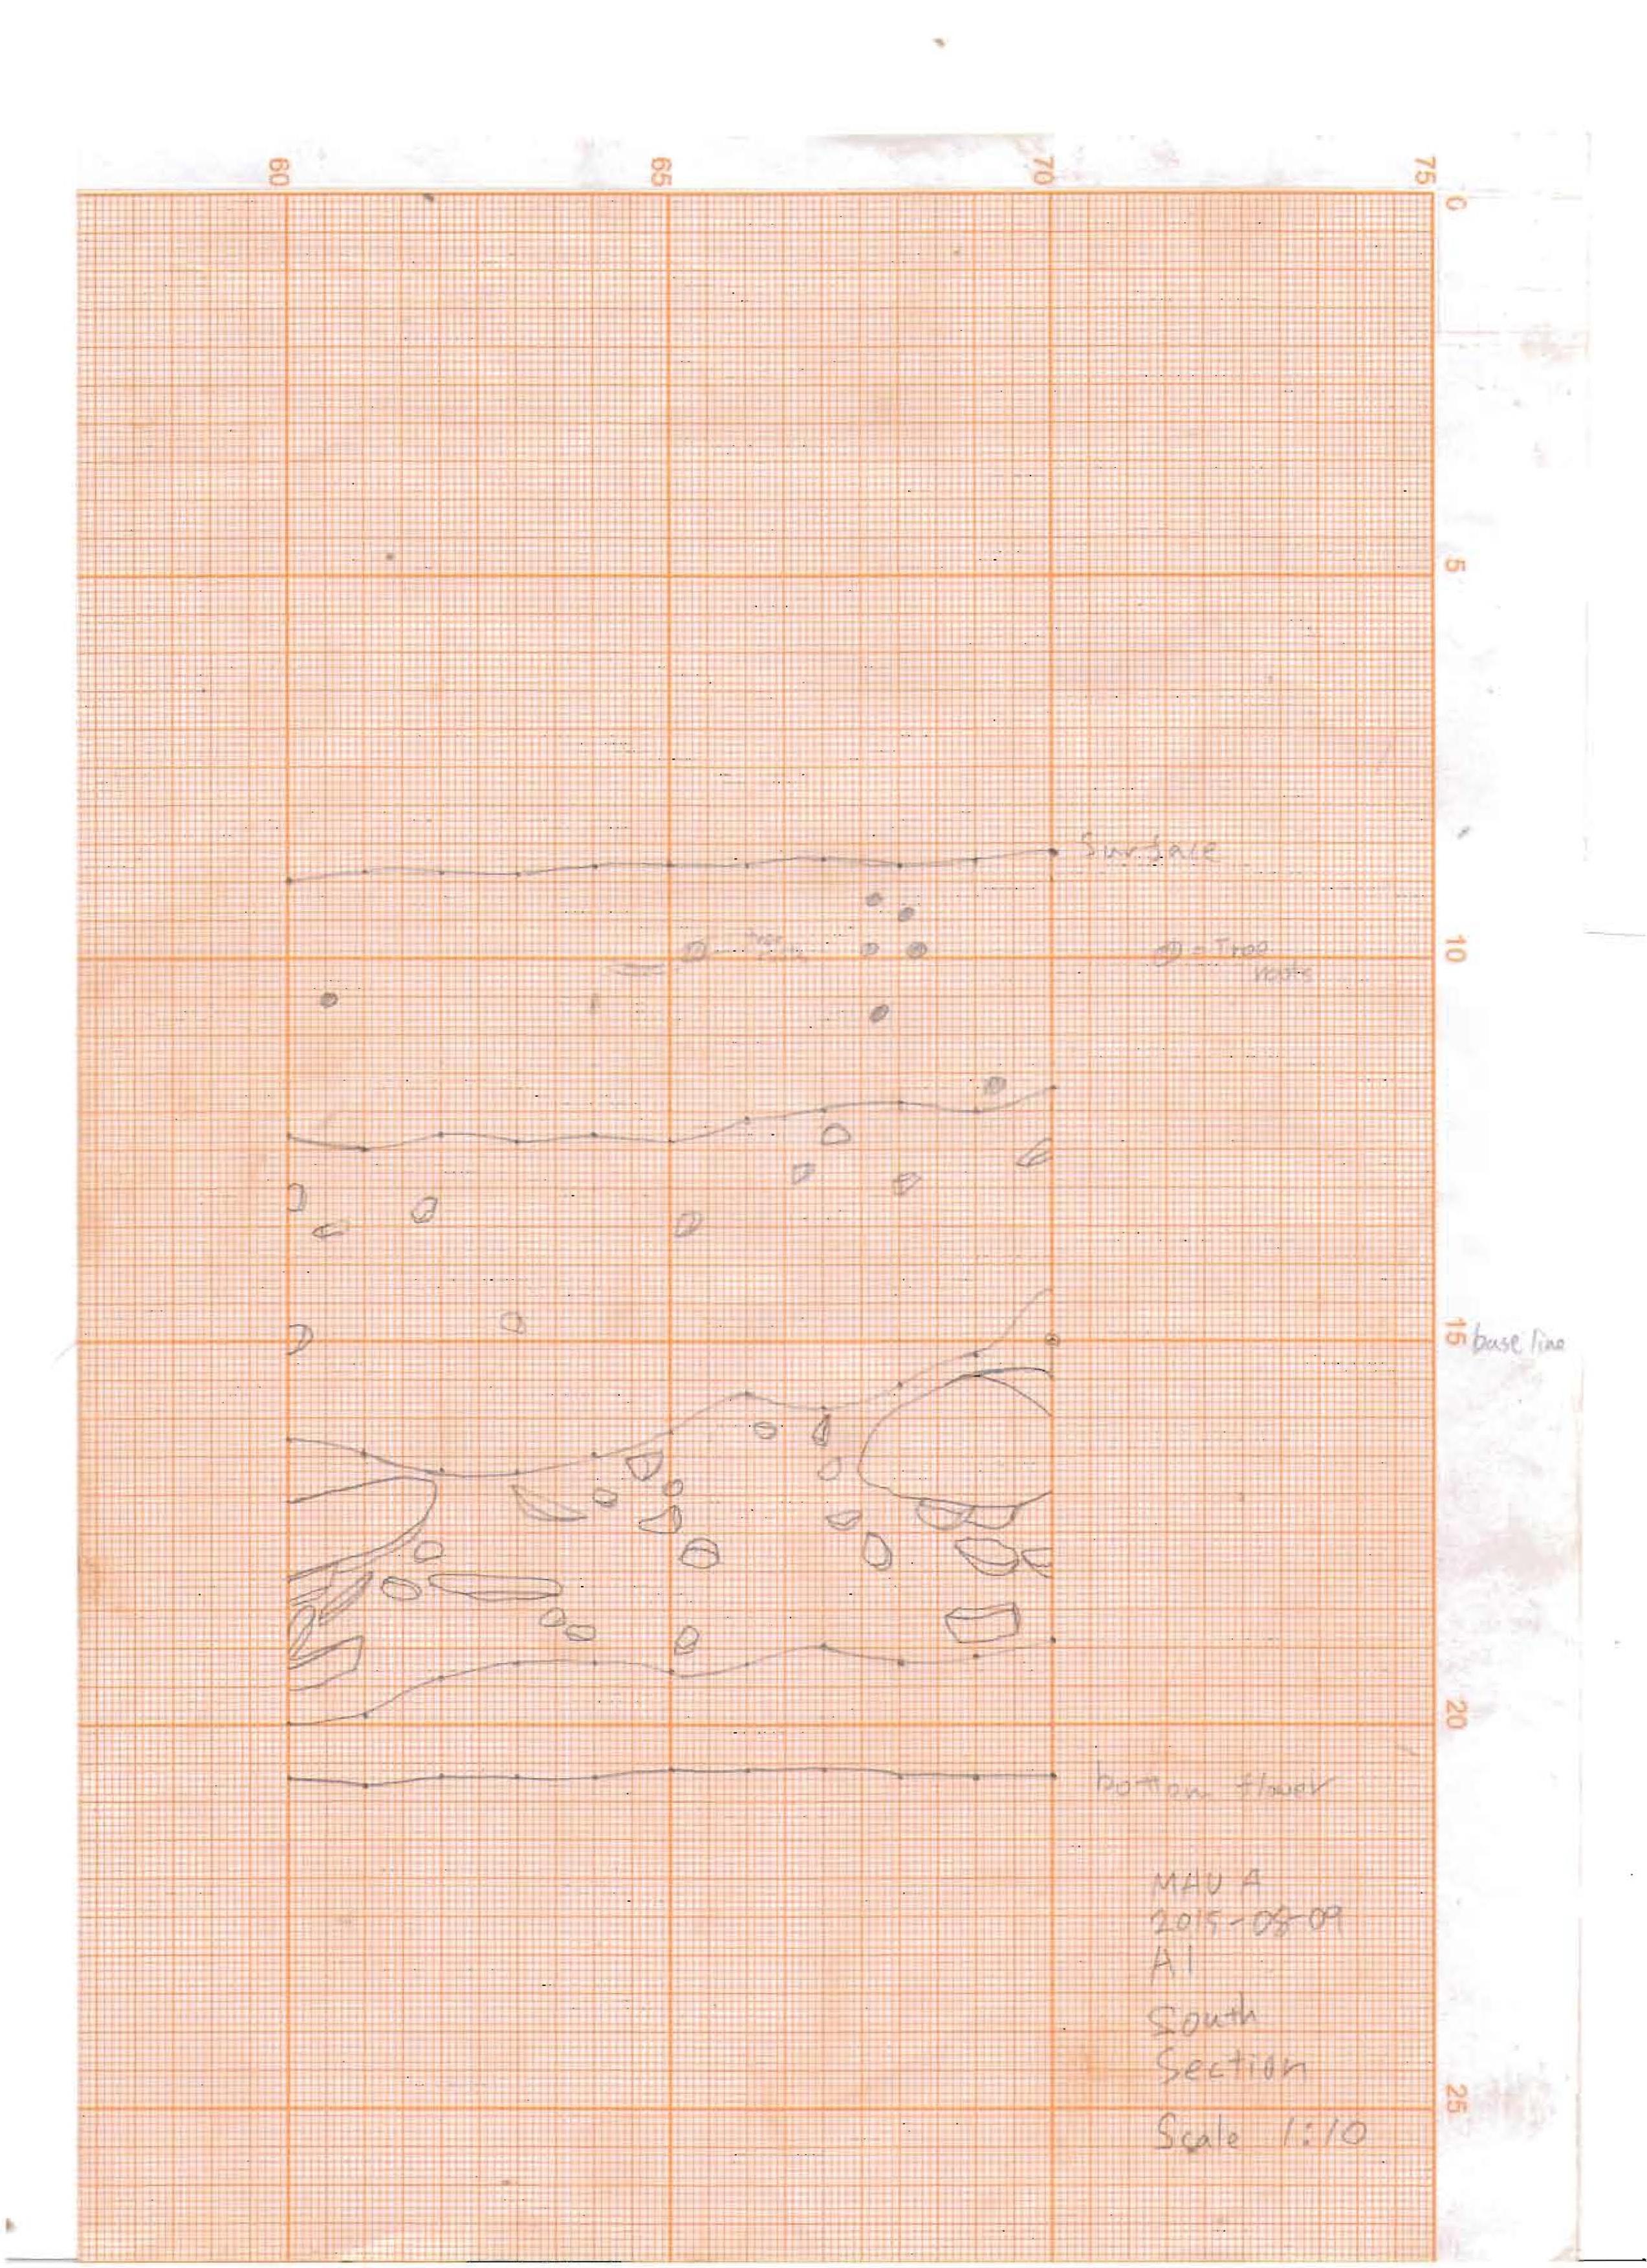 60
65
70
75
0
5
Surface
10
= Tree
roots
15
base line
20
bottom flower
MAU A
2015-08-09
A1
South
Section
25
Scale 1:10